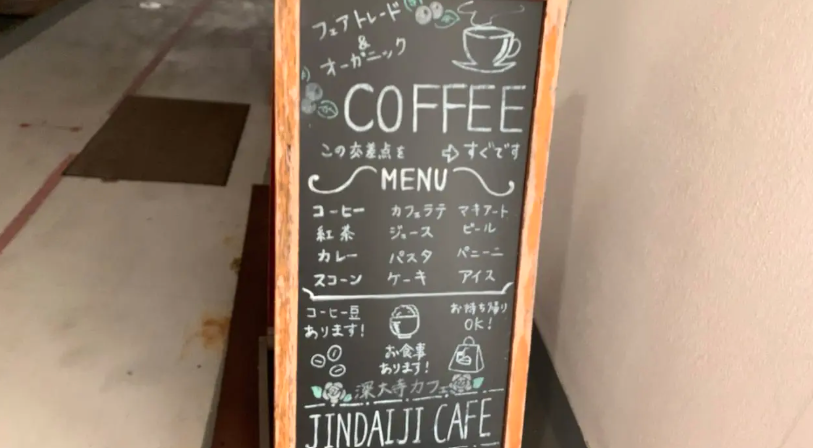 フェアトレード
&
オーガニック
COFFEE
この交差点を ⇨ すぐです
MENU
コーヒー カフェラテ マキアート
紅茶 ジュース ビール
カレー パスタ パニーニ
スコーン ケーキ アイス
コーヒー豆
あります!
お食事
あります!
お持ち帰り
OK!
深大寺カフェ
JINDAIJI CAFE